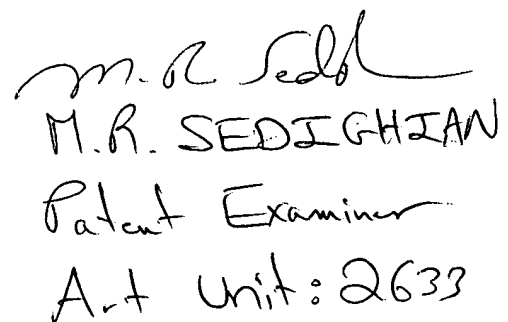 M. R Sedd
M.R. SEDIGHIAN
Patent Examiner
Art Unit: 2633